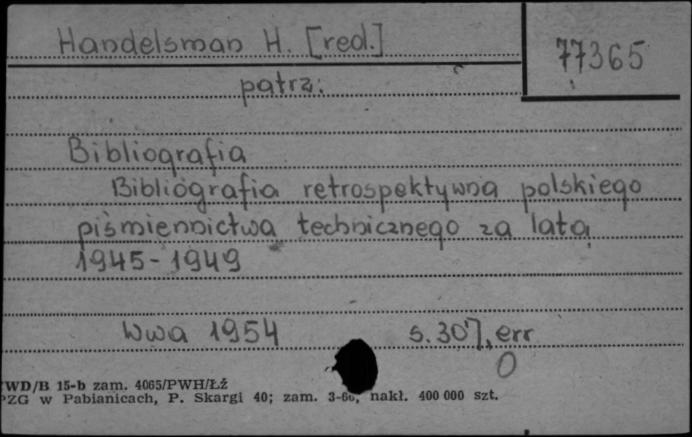 Handelsman H. [red.]
77365
patrz:
Bibliografia
Bibliografia retrospektywna polskiego
piśmiennictwa technicznego za lata
1945-1949
Wwa 1954 s. 307, err
0
WD/B 15-b zam. 4065/PWH/Łź
PZG w Pabianicach, P. Skargi 40; zam. nakł. 400 000 szt.